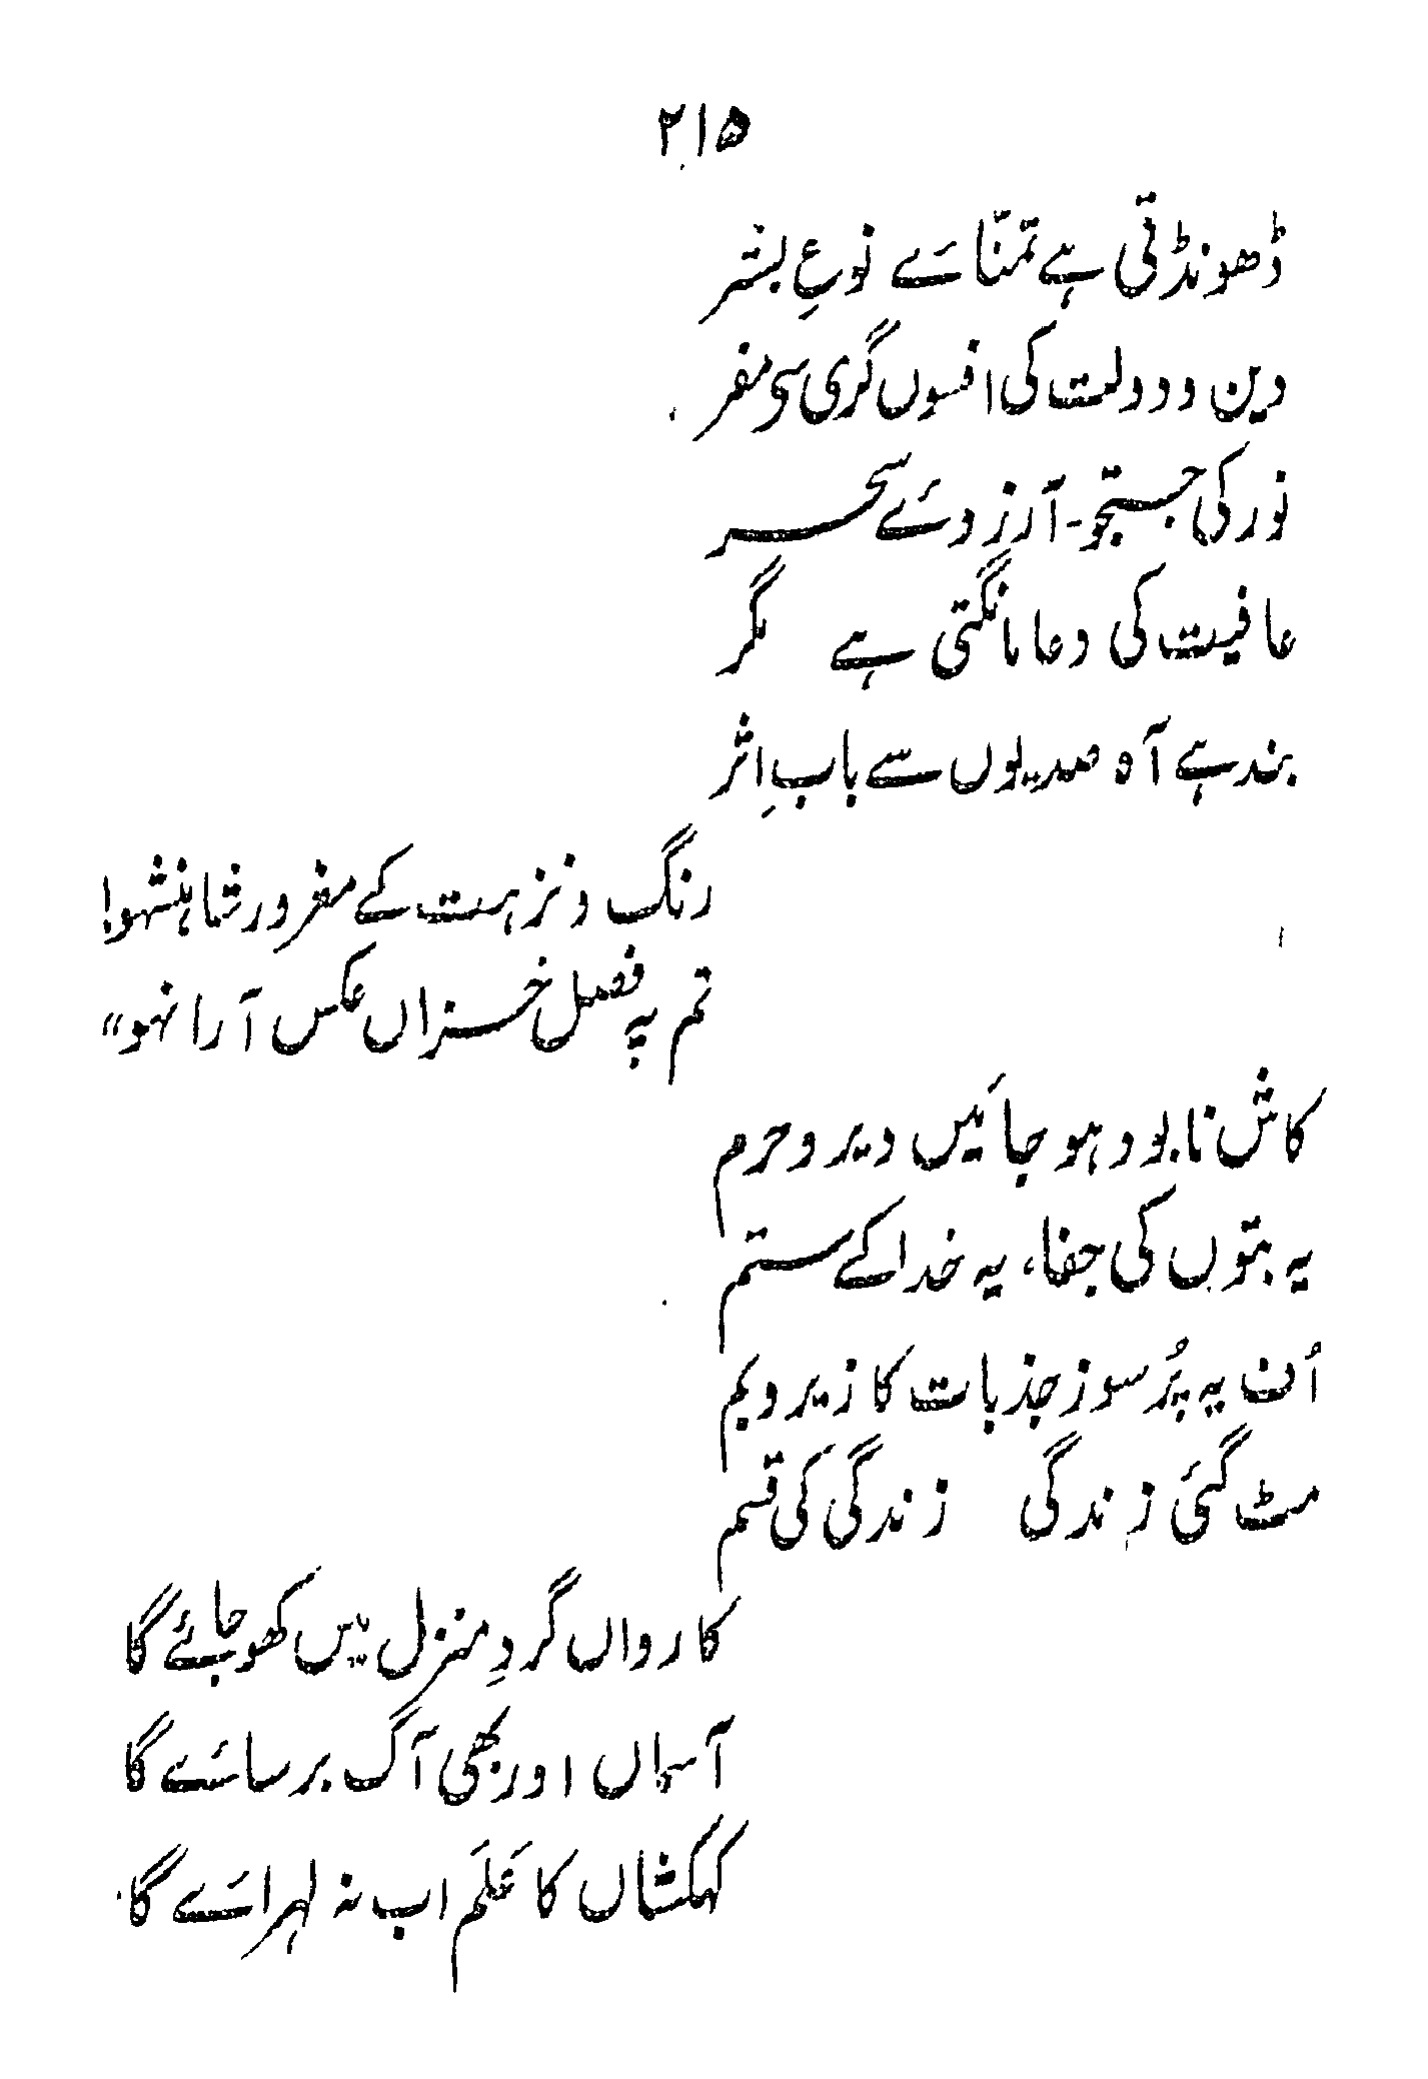 ۲۱۵
ڈھونڈتی ہے تمنّائے نوعِ بشر
دین و دولت کی افسوں گری سے مفر
نور کی جستجو۔ آرزوئے سحر
عافیت کی دعا مانگتی ہے مگر
بند ہے آہ صدیوں سے بابِ اثر
رنگ و نزہت کے مغرور شاہنشہو!
تم پہ فصل خزاں عکس آرا نہو"
کاش نابود ہو جائیں دیر و حرم
یہ بتوں کی جفا، یہ خدا کے ستم
اُف یہ پُرسوز جذبات کا زیر و بم
مٹ گئی زندگی زندگی کی قسم
کارواں گردِ منزل میں کھو جائے گا
آسماں اور بھی آگ برسائے گا
کہکشاں کا عَلَم اب نہ لہرائے گا